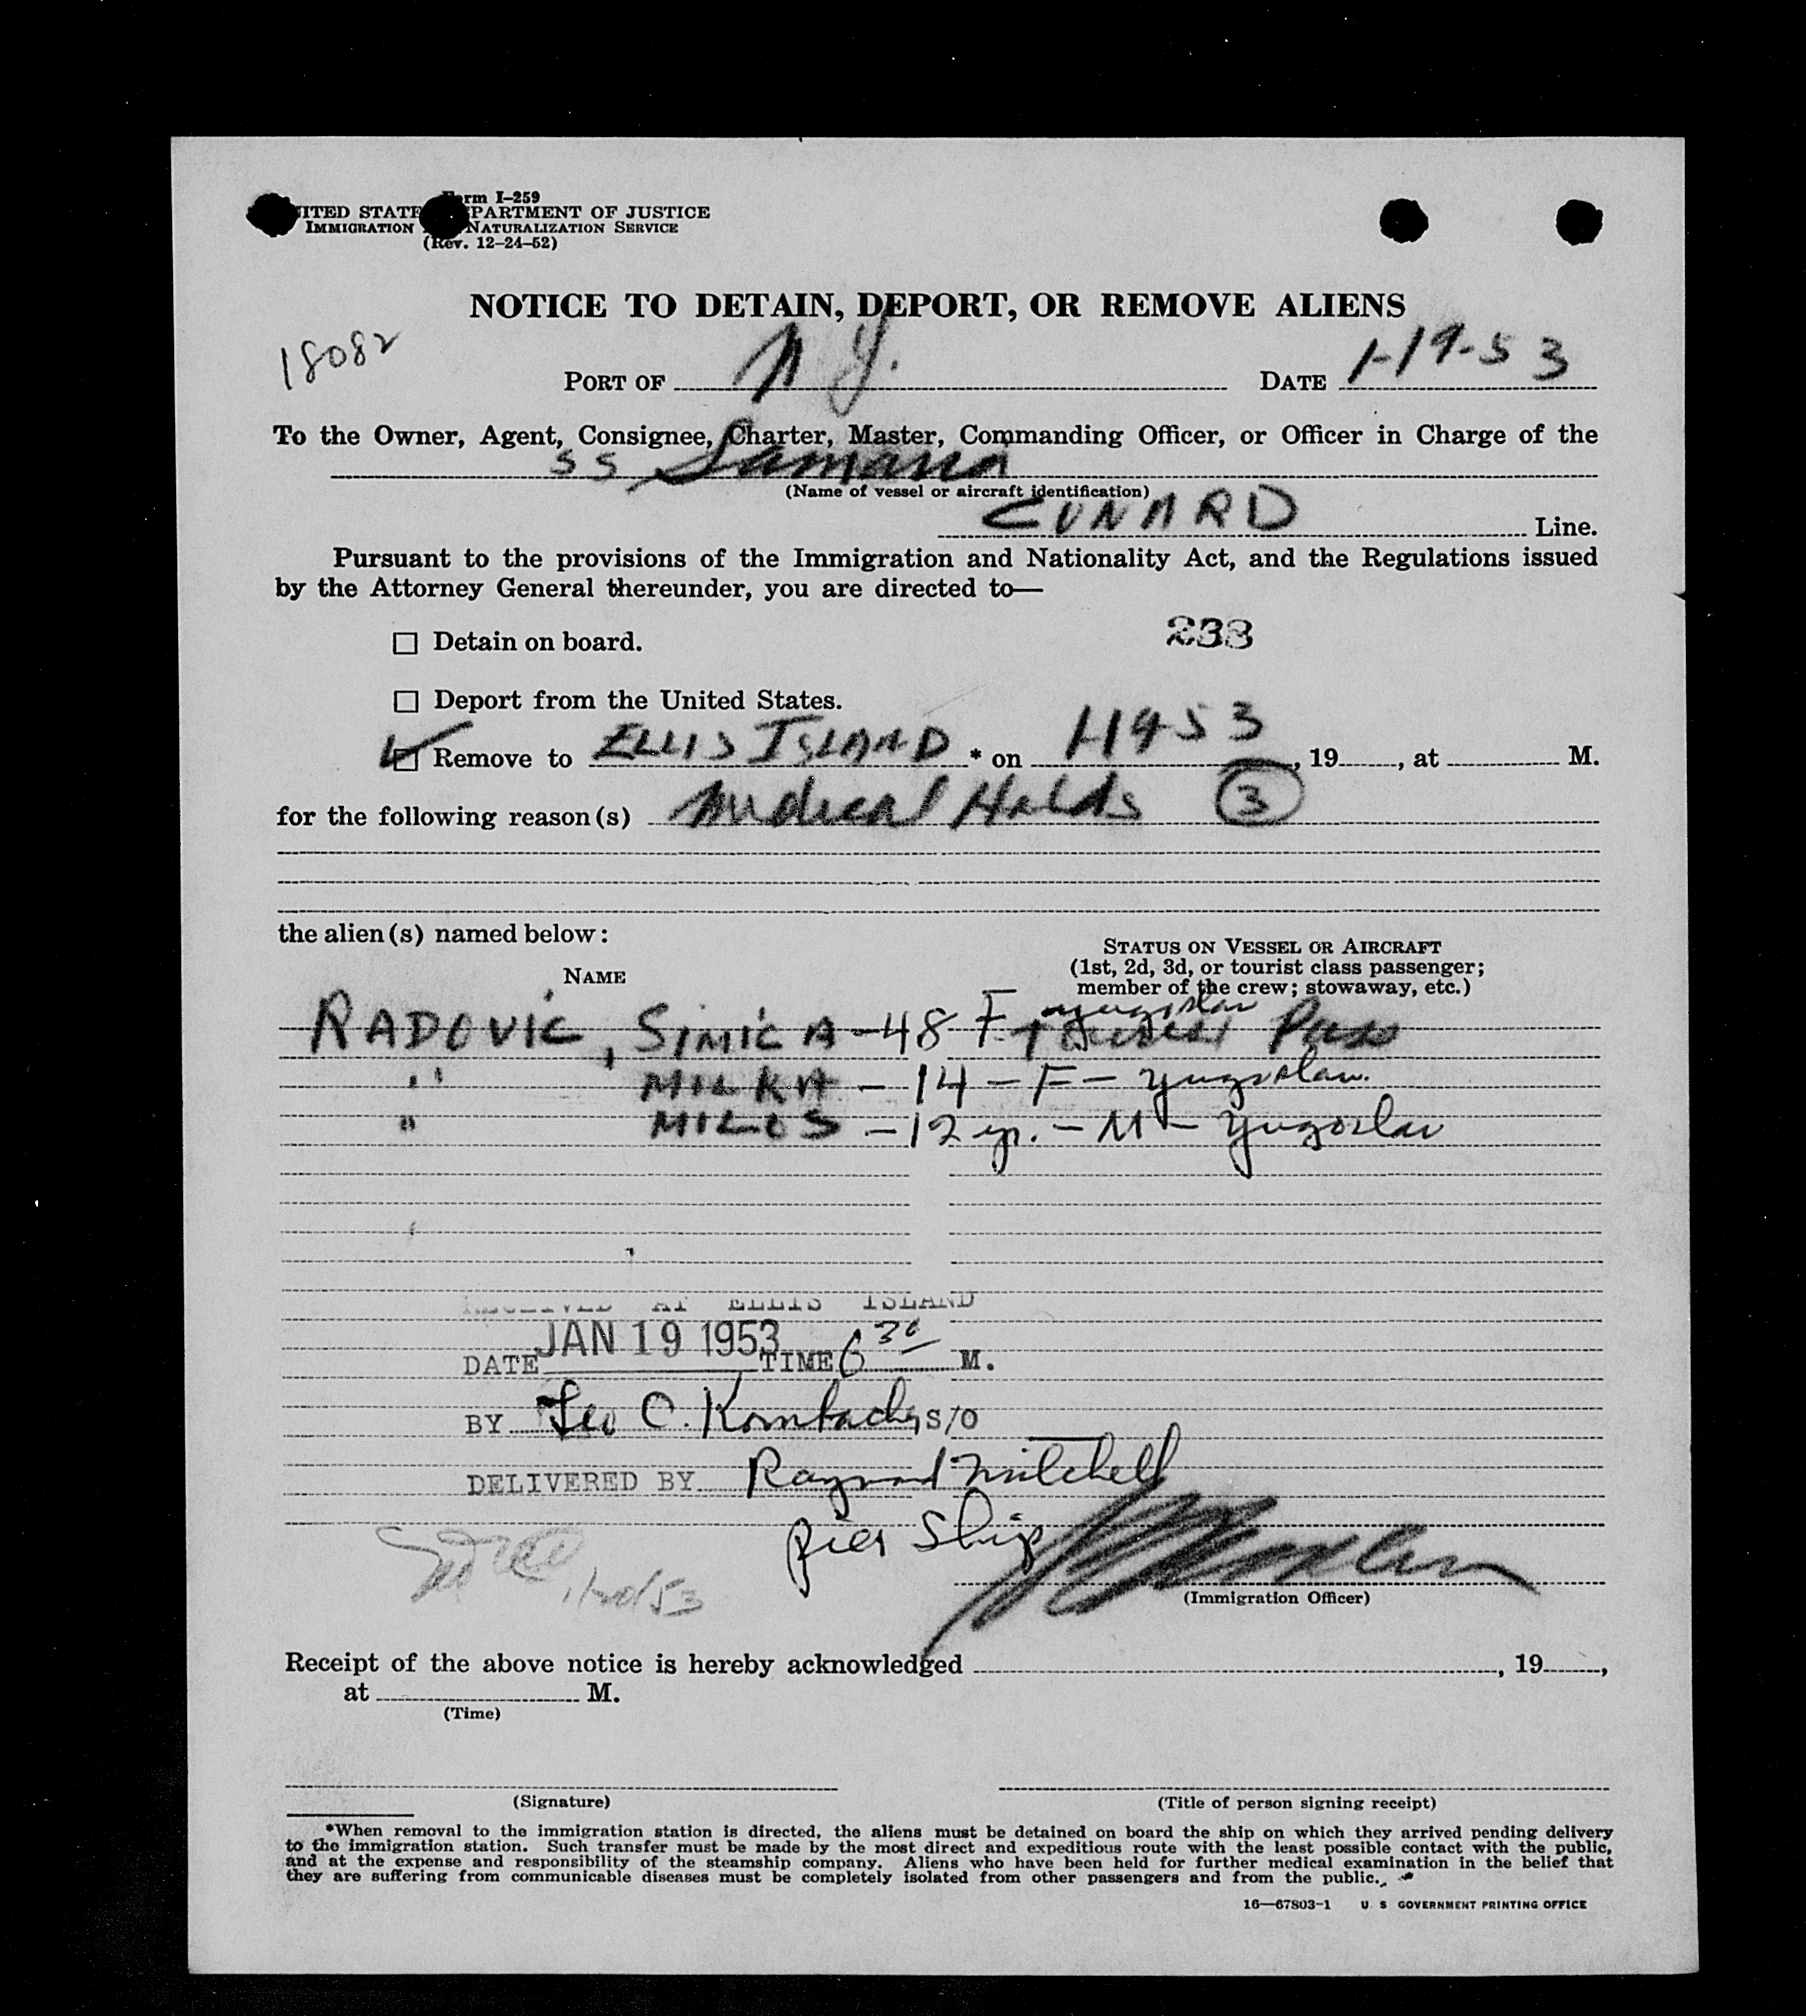 Form I-259
UNITED STATES DEPARTMENT OF JUSTICE
IMMIGRATION NATURALIZATION SERVICE
(Rev. 12-24-52)
NOTICE TO DETAIN, DEPORT, OR REMOVE ALIENS
18082
PORT OF N Y. DATE 1-19-53
To the Owner, Agent, Consignee, Charter, Master, Commanding Officer, or Officer in Charge of the
SS Samaria
(Name of vessel or aircraft identification)
CUNARD Line.
Pursuant to the provisions of the Immigration and Nationality Act, and the Regulations issued
by the Attorney General thereunder, you are directed to—
☐ Detain on board. 238
☐ Deport from the United States.
☑ Remove to ELLIS ISLAND * on 1-19-53, 19, at M.
for the following reason(s) Medical Holds 3
the alien(s) named below:
NAME
STATUS ON VESSEL OR AIRCRAFT
(1st, 2d, 3d, or tourist class passenger;
member of the crew; stowaway, etc.)
RADOVIC, SIMICA - 48 F. Yugoslav Tourist Pass
" MILKA - 14 - F - Yugoslav.
" MILOS - 12 yr. - M - Yugoslav
RECEIVED AT ELLIS ISLAND
DATE JAN 19 1953 TIME 6 30 M.
BY Leo C. S/O
DELIVERED BY Raymond Mitchell
pier Ship
1/20/53
(Immigration Officer)
Receipt of the above notice is hereby acknowledged , 19 ,
at M.
(Time)
(Signature) (Title of person signing receipt)
*When removal to the immigration station is directed, the aliens must be detained on board the ship on which they arrived pending delivery
to the immigration station. Such transfer must be made by the most direct and expeditious route with the least possible contact with the public,
and at the expense and responsibility of the steamship company. Aliens who have been held for further medical examination in the belief that
they are suffering from communicable diseases must be completely isolated from other passengers and from the public.
16—67803-1 U S GOVERNMENT PRINTING OFFICE